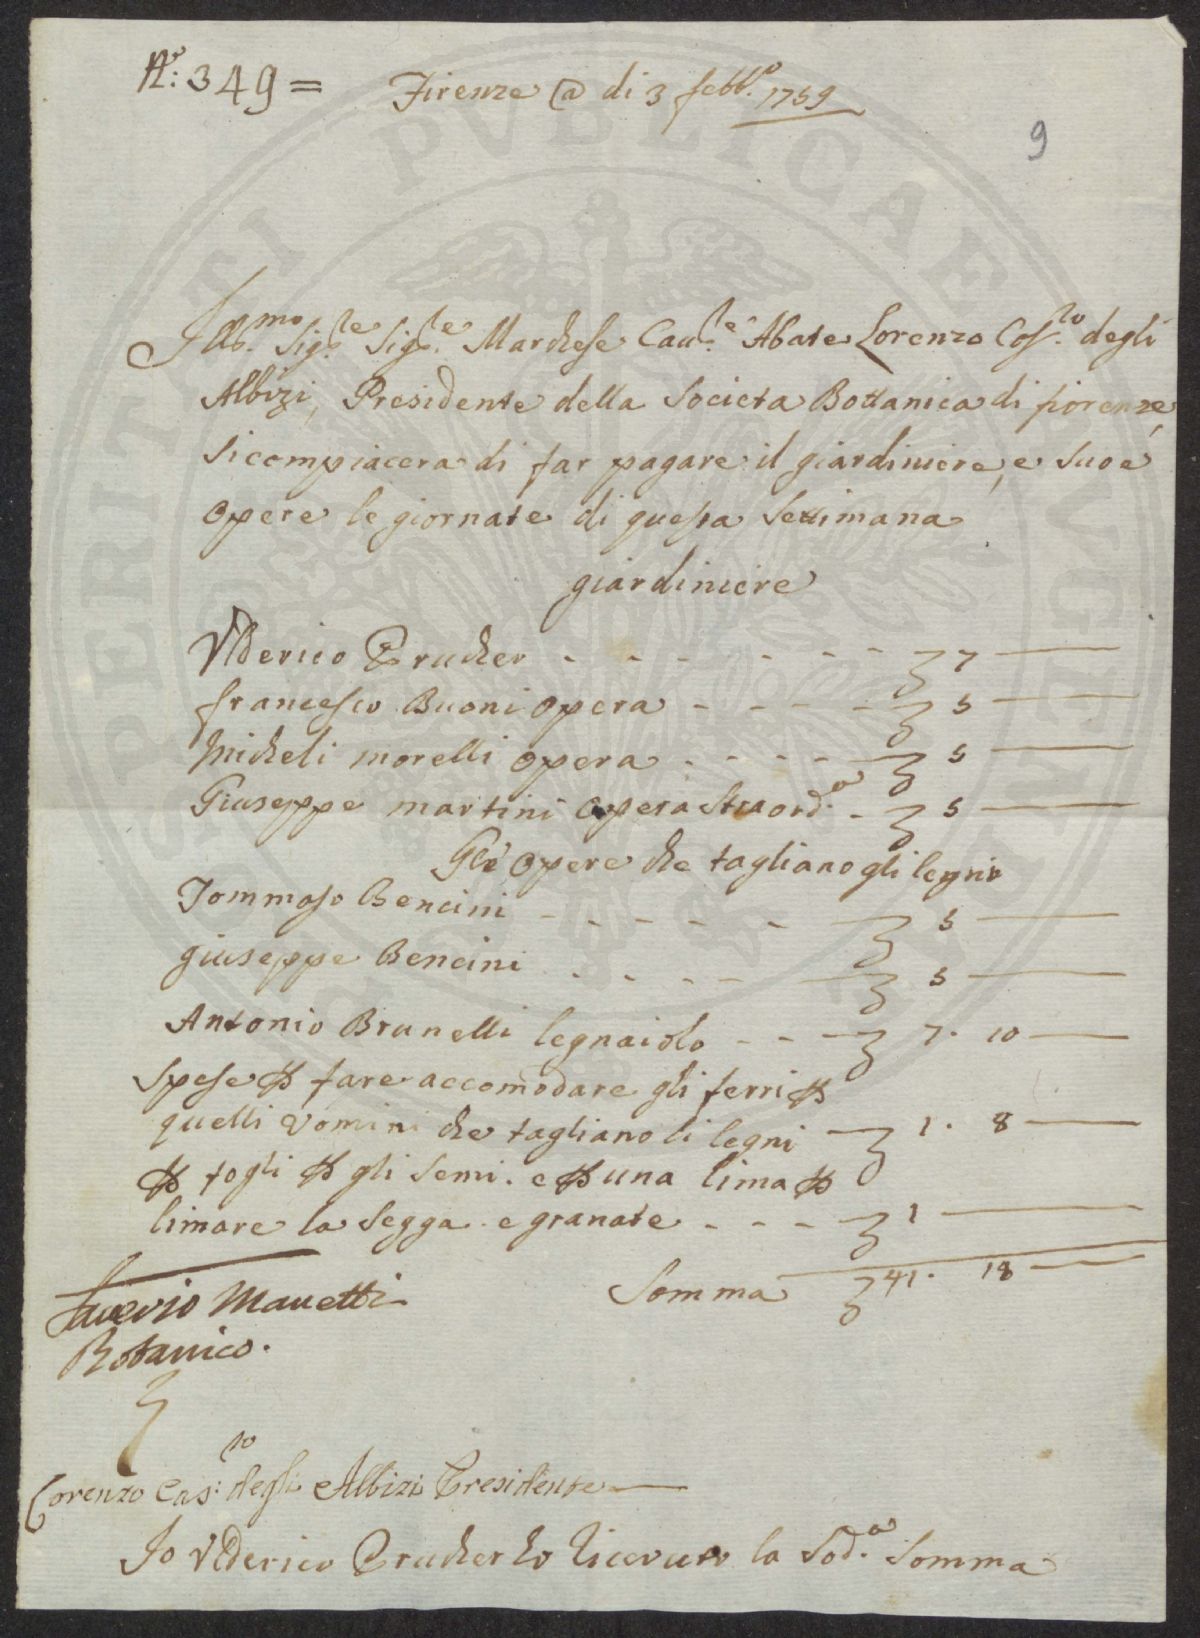 N.o: 349 =
Firenze @ di 3 febb.o 1759
9
Ill.mo Sig.re Sig.re Marchese Cau.re Abate Lorenzo Cos.to degli
Albizi, Presidente della Societa Bottanica di fiorenze,
Si compiacera di far pagare il giardiniere, e suoe
opere le giornate di questa Settimana
giardiniere
Vlderico Prucher - - - - - - - 7
francesco Buoni opera - - - - - 5
Micheli morelli opera - - - - 5
Giuseppe martini opera straord.a - 5
Gle opere che tagliano gli legni
Tommaso Bencini - - - - - 5
giuseppe Bencini - - - - 5
Antonio Brunelli legnaiolo - - - 7. 10
Spese p fare accomodare gli ferri p
quelli Vomini che tagliano li legni 1. 8
p fogli p gli semi. e p una lima p
limare la Segga. e granate - - - 1
Somma 41. 18
Saverio Manetti
Botanico.
Lorenzo Cas:to degli Albizi Presidente
Io Vlderico Prucher ho riceuuto la Sod.a Somma
PERITATI PVBLICAE